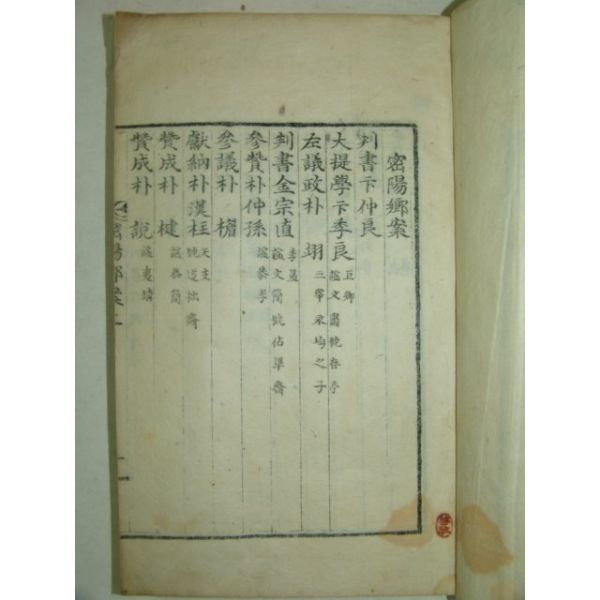 密陽鄉案
判書卞仲良
大提學卞季良 巨卿 諡文肅號春亭
左議政朴 翊 三宰永均之子
刑書金宗直 季昷 諡文簡號佔畢齋
參贊朴仲孫 諡恭孝
參議朴 楯
獻納朴漢柱 天支 號迂拙齋
贊成朴 楗 諡恭簡
贊成朴 說 諡夷靖
密陽鄉案